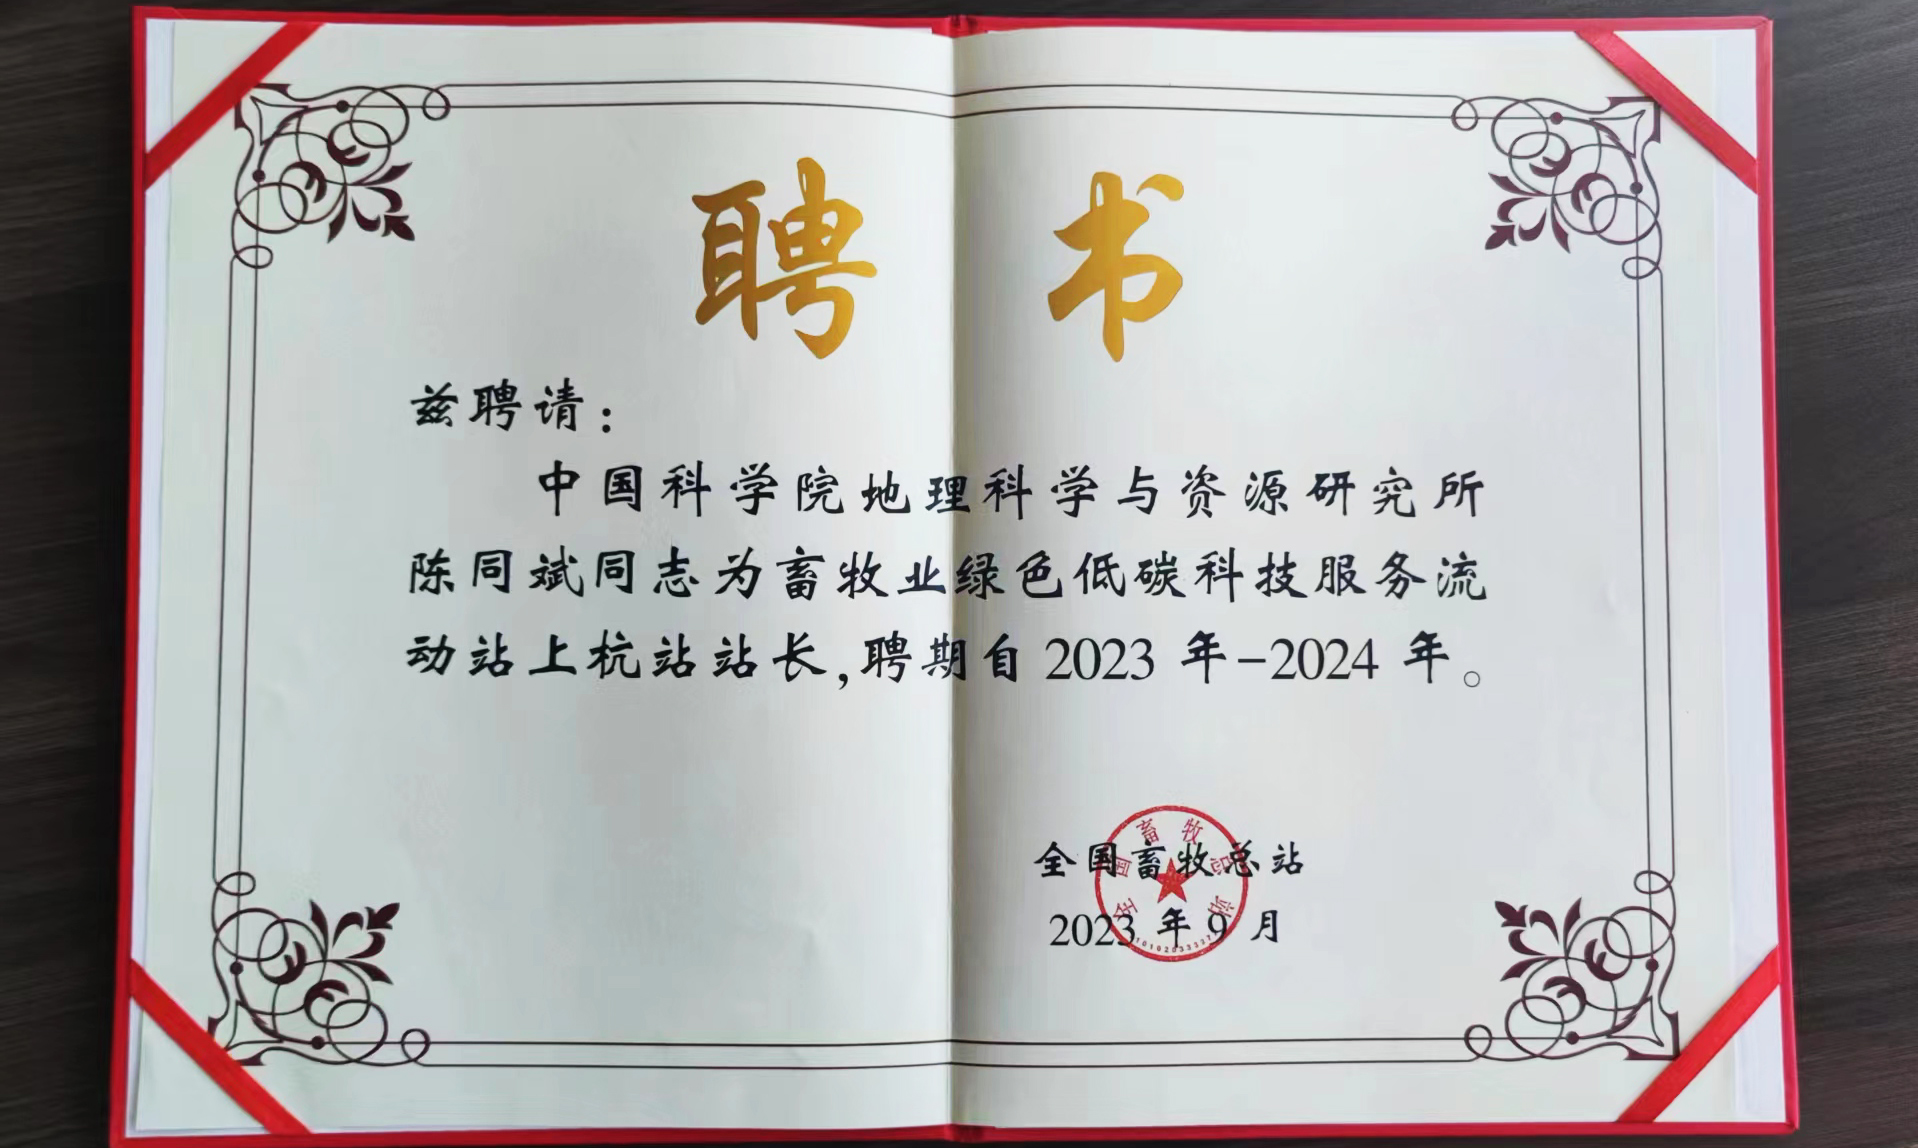 聘 书
兹聘请：
中国科学院地理科学与资源研究所
陈同斌同志为畜牧业绿色低碳科技服务流
动站上杭站站长，聘期自 2023 年-2024 年。
全国畜牧总站
2023 年 9 月
全国畜牧总站